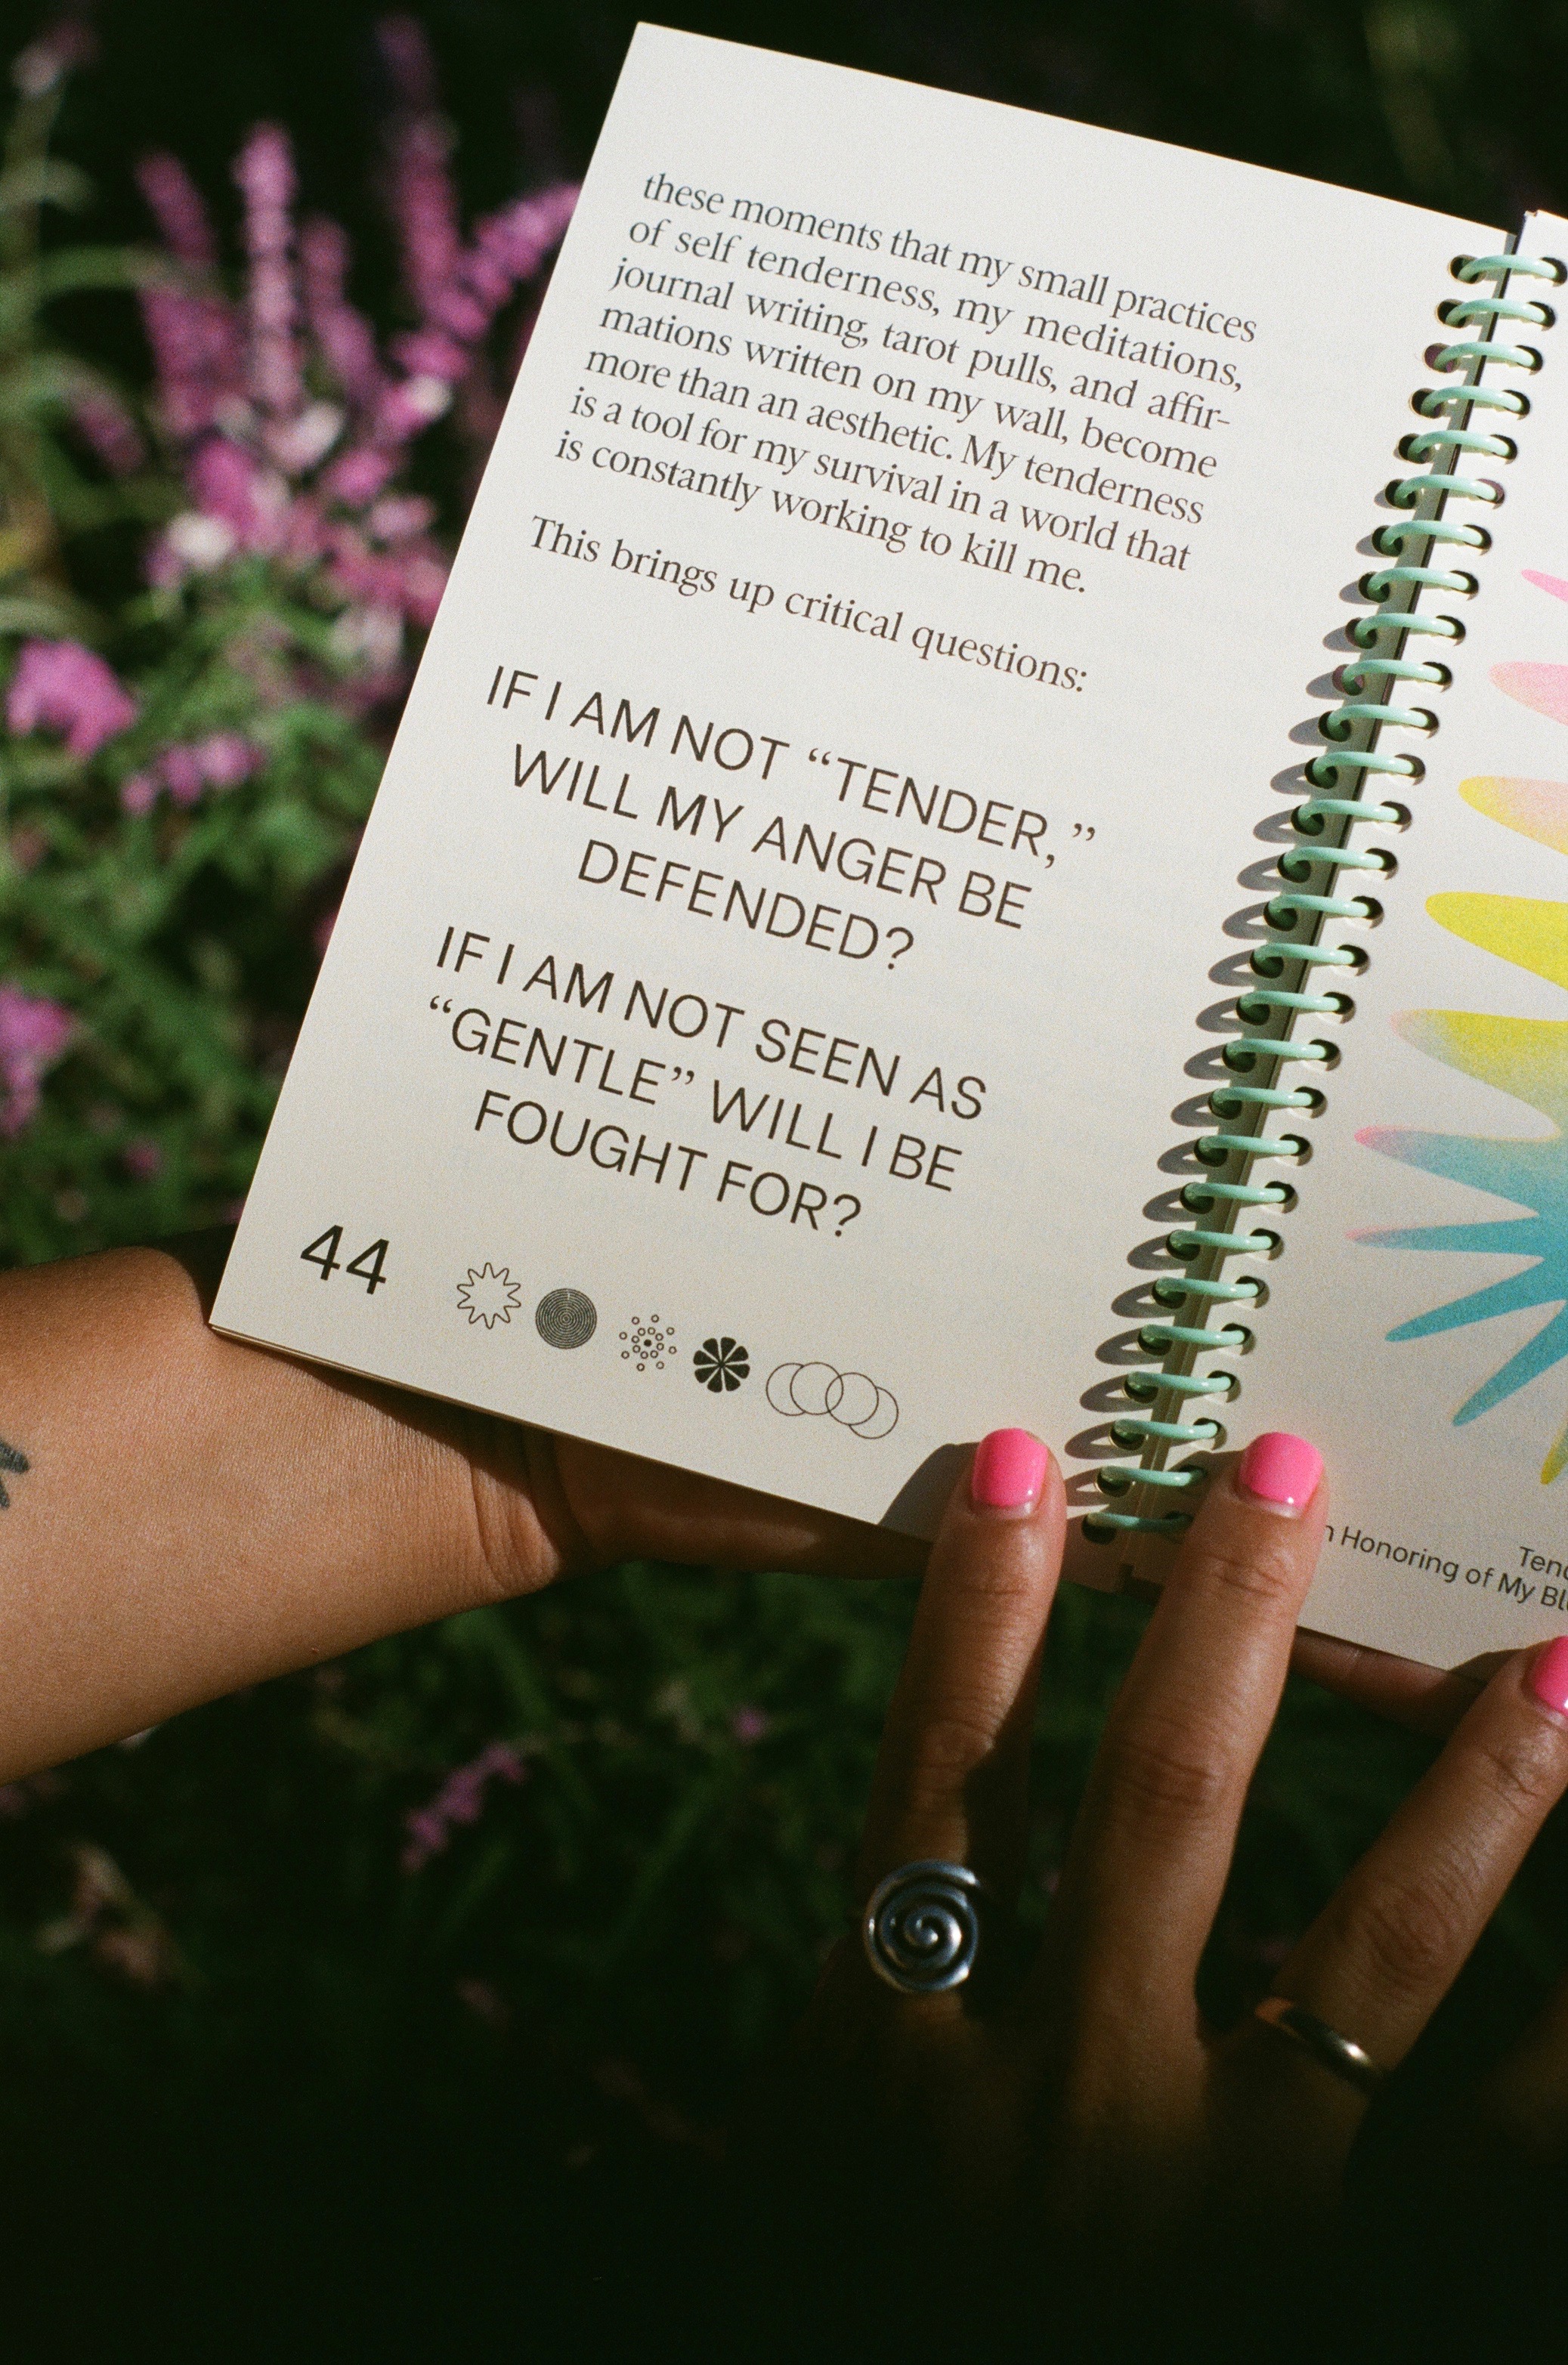 these moments that my small practices
of self tenderness, my meditations,
journal writing, tarot pulls, and affir-
mations written on my wall, become
more than an aesthetic. My tenderness
is a tool for my survival in a world that
is constantly working to kill me.
This brings up critical questions:
IF I AM NOT “TENDER,”
WILL MY ANGER BE
DEFENDED?
IF I AM NOT SEEN AS
“GENTLE” WILL I BE
FOUGHT FOR?
44
Honoring of My